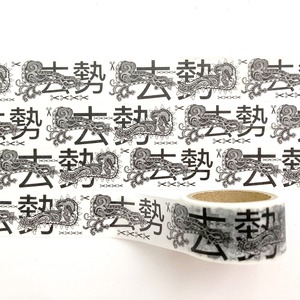 去勢 去勢 去勢
去勢 去勢
去勢 去勢 去勢
去勢 去勢